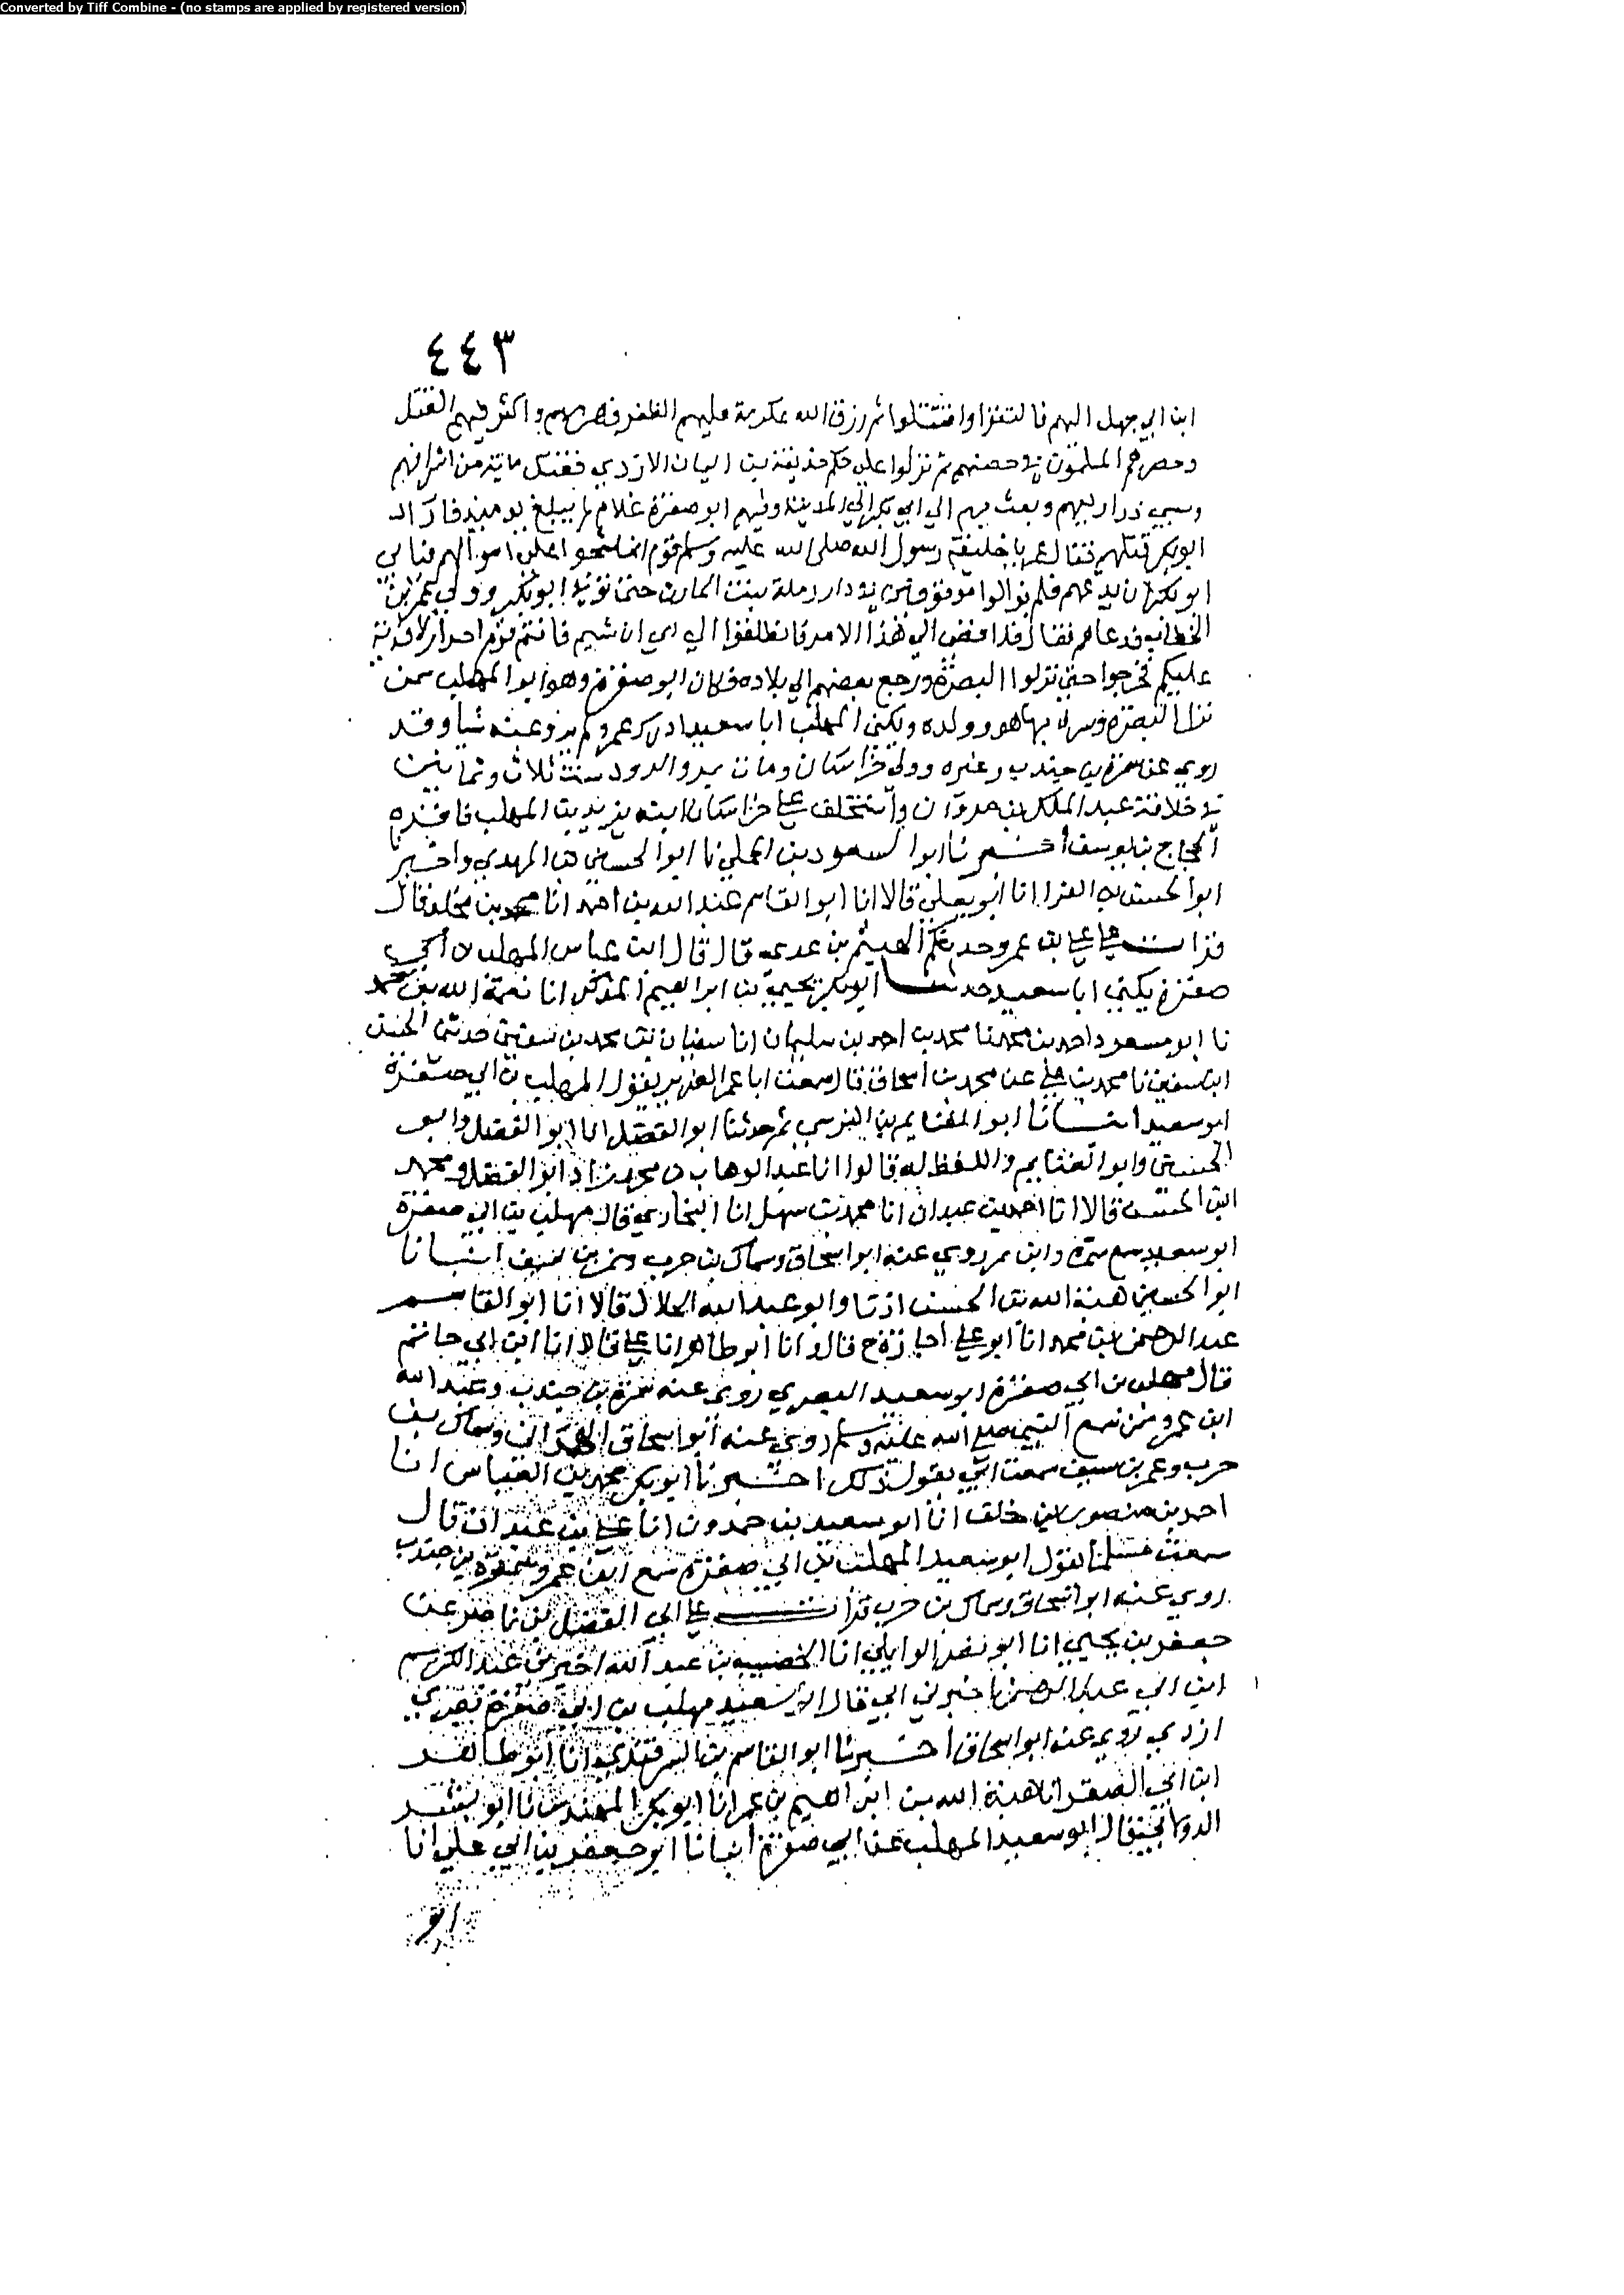 Converted by Tiff Combine - (no stamps are applied by registered version)
٤٤٣
ابن ابي جهل اليهم فالتقوا واقتتلوا ثم رزق الله عكرمة عليهم الظفر فهزمهم واكثر فيهم القتل
وحصرهم المسلمون في حصنهم ثم نزلوا على حكم حذيفة بن اليمان الازدي فقتل مائة من اشرافهم
وسبي ذراريهم وبعث بهم الي ابي بكر الي المدينة وفيهم ابو صفرة غلام لم يبلغ يومئذ فاراد
ابو بكر قتلهم فقال عمر يا خليفة رسول الله صلى الله عليه وسلم قوم انما شحوا على اموالهم فيابى
ابو بكر ان يدعهم فلم يزالوا موقوفين في دار رملة بنت الحارث حتى توفي ابو بكر وولي عمر بن
الخطاب فدعاهم فقال قد افضى الي هذا الامر فانطلقوا الي اي ان شيتم فانتم قوم احرار لا فدية
عليكم فخرجوا حتى نزلوا البصرة ورجع بعضهم الي بلاده فكان ابو صفرة وهو ابو المهلب ممن
نزل البصرة وشرف بها هو وولده ويكنى المهلب ابا سعيد ادرك عمر ولم يرو عنه شيأ وقد
روي عن سمرة بن جندب وغيره وولي خراسان ومات بمرو الروذ سنة ثلاث وثمانين
في خلافة عبد الملك بن مروان واستخلف على خراسان ابنه يزيد بن المهلب فاقره
الحجاج بن يوسف اخبرنا ابو السعود بن المجلي نا ابو الحسين بن المهدي واخبرنا
ابو الحسين بن الفرا انا ابو يعلى قالا انا ابو القاسم عبد الله بن احمد انا محمد بن مخلد قال
قرات على علي بن عمرو حدثكم الهيثم بن عدي قال قال ابن عباس المهلب بن ابي
صفرة يكنى ابا سعيد حدثنا ابو بكر يحيى بن ابراهيم المذكر انا نعمة الله بن محمد
نا ابو مسعود احمد بن محمد نا محمد بن احمد بن سليمان انا سفيان بن محمد بن سفين حدثني الحسن
ابن سفين نا محمد بن علي عن محمد بن اسحاق قال سمعت ابا عمر الضرير يقول المهلب بن ابي صفرة
ابو سعيد انبانا ابو الغنايم بن النرسي ثم حدثنا ابو الفضل انا ابو الفضل وابو
الحسين وابو الغنايم واللفظ له قالوا انا عبد الوهاب بن محمد زاد ابو الفضل ومحمد
ابن الحسن قالا انا احمد بن عبدان انا محمد بن سهل انا البخاري قال مهلب بن ابي صفرة
ابو سعيد سمع سمرة وابن عمر روي عنه ابو اسحاق وسماك بن حرب وعمر بن سيف انبانا
ابو الحسين هبة الله بن الحسن اذنا وابو عبد الله الخلال قالا انا ابو القاسم
عبد الرحمن بن محمد انا ابو علي اجازة ح قال وانا ابو طاهر انا علي قالا انا ابن ابي حاتم
قال مهلب بن ابي صفرة ابو سعيد البصري روى عنه سمرة بن جندب وعبد الله
ابن عمر ومن سمع النبي صلى الله عليه وسلم روى عنه ابو اسحاق الهمداني وسماك بن
حرب وعمر بن سيف سمعت ابي يقول ذلك اخبرنا ابو بكر محمد بن العباس انا
احمد بن منصور بن خلف انا ابو سعيد بن حمدون انا علي بن عبدان قال
سمعت مسلما يقول ابو سعيد المهلب بن ابي صفرة سمع ابن عمر وسمرة بن جندب
روي عنه ابو اسحاق وسماك بن حرب قرات على ابي الفضل بن ناصر عن
جعفر بن يحيى انا ابو نصر الوايلي انا الخصيب بن عبد الله اخبرني عبد الكريم
ابن ابي عبد الرحمن اخبرني ابي قال ابو سعيد مهلب بن ابي صفرة بصري
ازدي روي عنه ابو اسحاق اخبرنا ابو القاسم بن السمرقندي انا ابو طاهر
ابن ابي الصقر انا هبة الله بن ابراهيم بن عمر انا ابو بكر المهندس نا ابو بشر
الدولابي قال ابو سعيد المهلب عن ابي صفرة انبانا ابو جعفر بن ابي علي انا
ابو